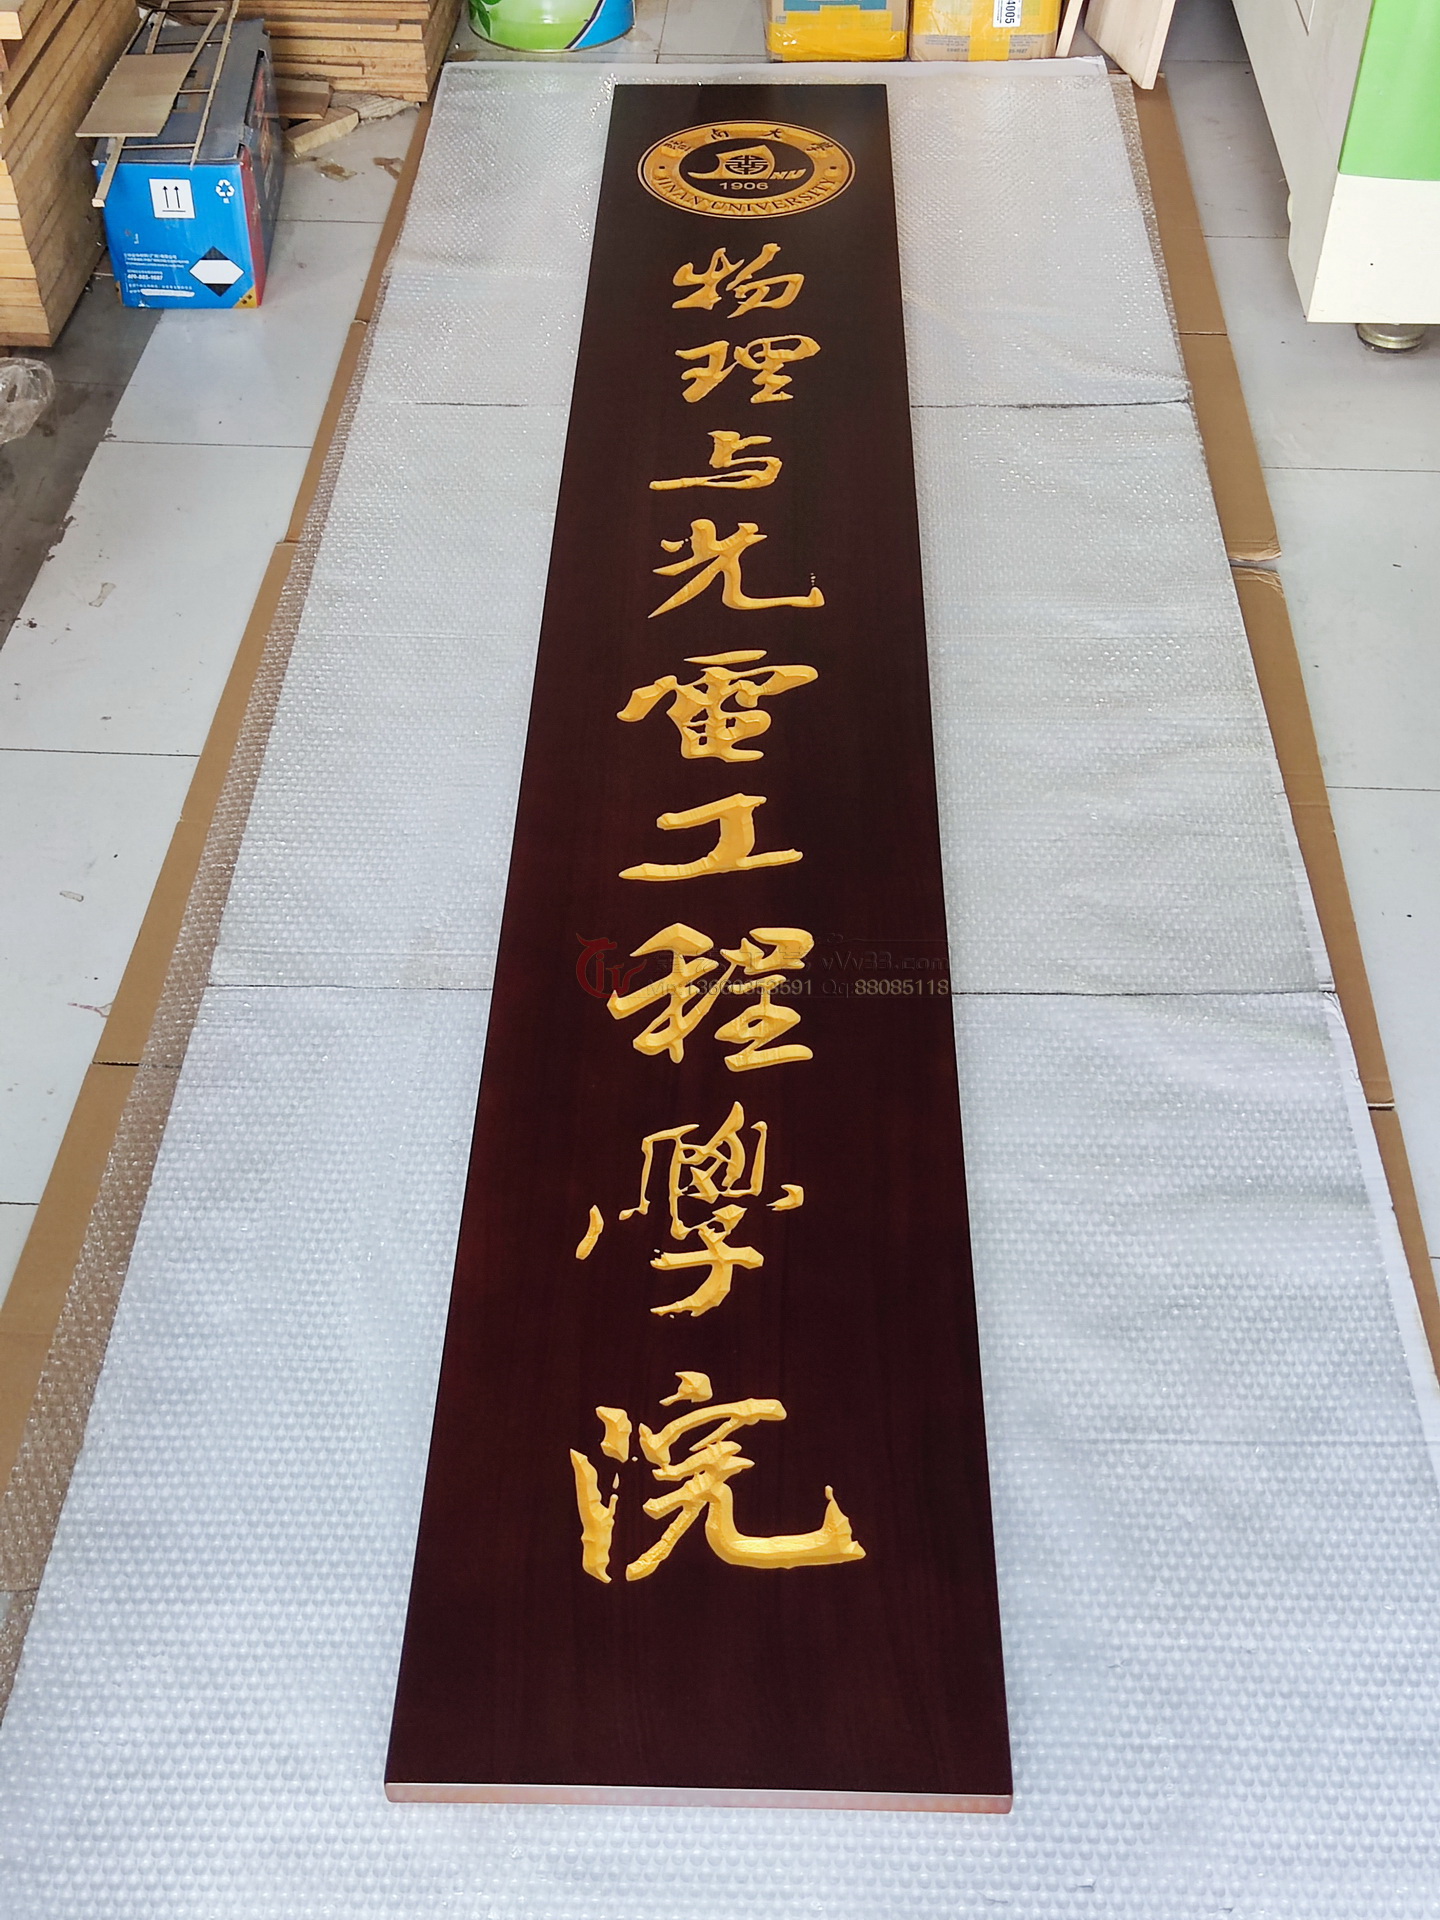 暨南大學
JNU
1906
JINAN UNIVERSITY
物理与光電工程學院
vVv33.com
13660353591 Qq:88085118
4005